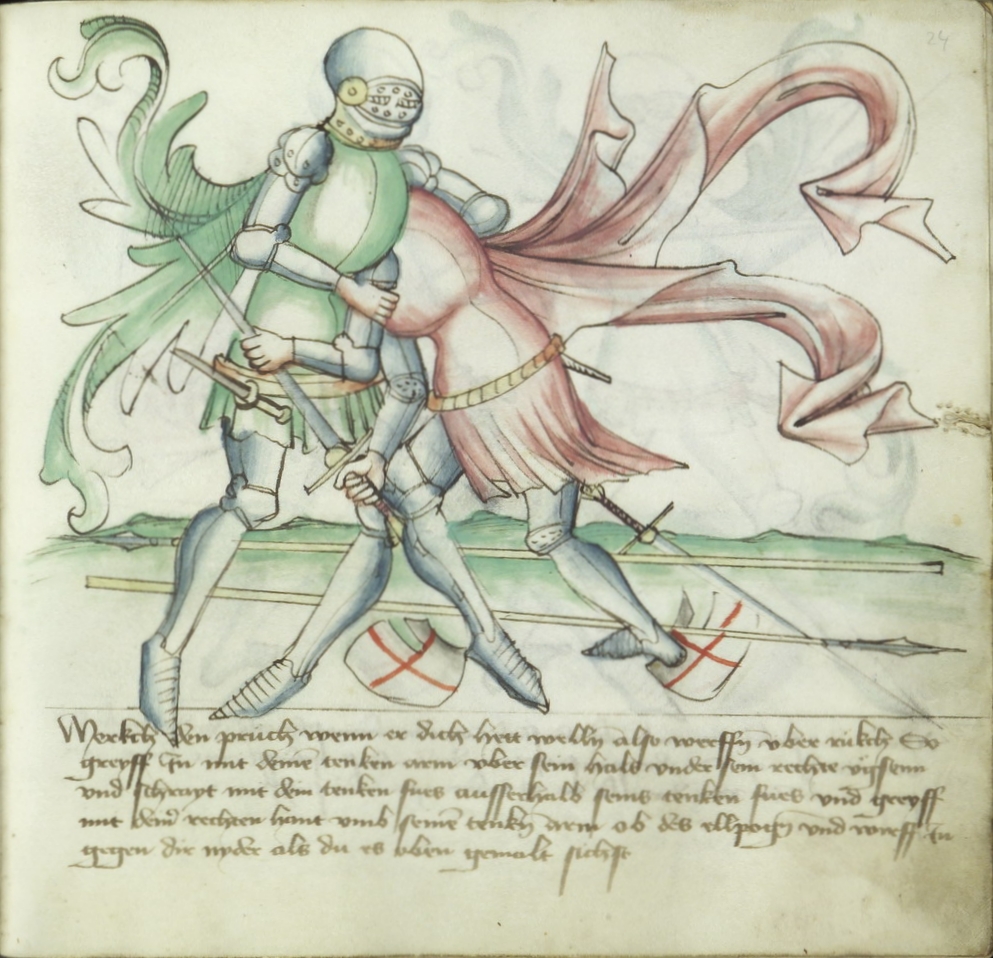 24
Merckh den pruch wenn er dich hett welln also werffn vber rukch So
greyff Im mit deinē tenken arm vber sein hals vnder sein rechte vͤgsenn
vnd schreyt mit dem tenken fues ausserhalb seins tenken fues vnd greyff
mit der rechten hant vmb seinē tenkn arm ob des ellpogn vnd wirff In
gegen dir nyder als du es oben gemalt sichst